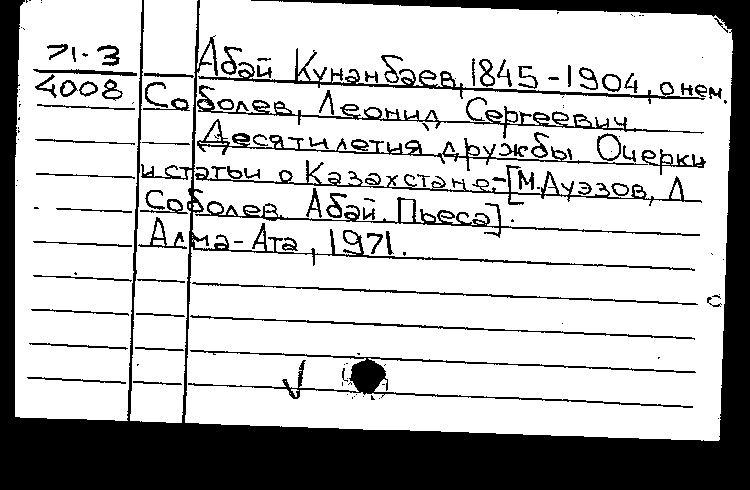 71-3 Абай Кунанбаев, 1845-1904, о нем.
4008 Соболев, Леонид Сергеевич
Десятилетия дружбы Очерки
и статьи о Казахстане.-[М.Ауэзов, Л
Соболев. Абай. Пьеса].
Алма-Ата, 1971.